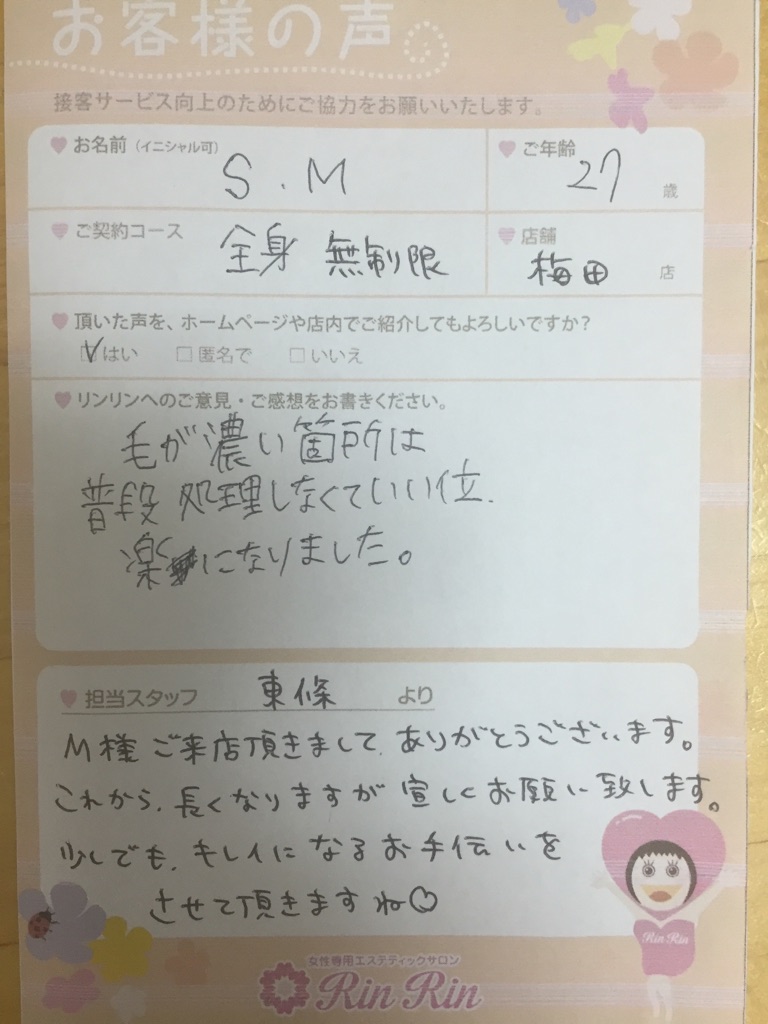 お客様の声
接客サービス向上のためにご協力をお願いいたします。
お名前(イニシャル可) S.M
ご年齢 27 歳
ご契約コース 全身 無制限
店舗 梅田 店
頂いた声を、ホームページや店内でご紹介してもよろしいですか?
はい □匿名で □いいえ
リンリンへのご意見・ご感想をお書きください。
毛が濃い箇所は
普段処理しなくていい位.
楽になりました。
担当スタッフ 東條 より
M様ご来店頂きまして、ありがとうございます。
これから、長くなりますが宜しくお願い致します。
少しでも、キレイになるお手伝いを
させて頂きますね♡
Rin Rin
女性専用エステティックサロン
Rin Rin